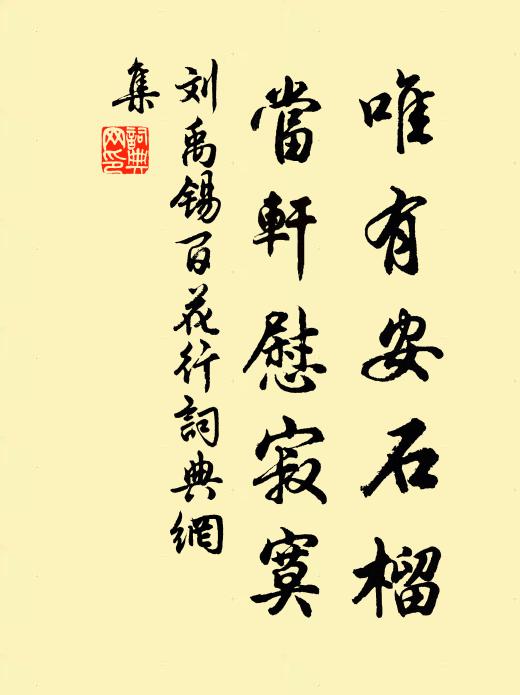 唯有安石榴
當軒慰寂寞
刘禹锡百花行詞典網
集
詞典网印